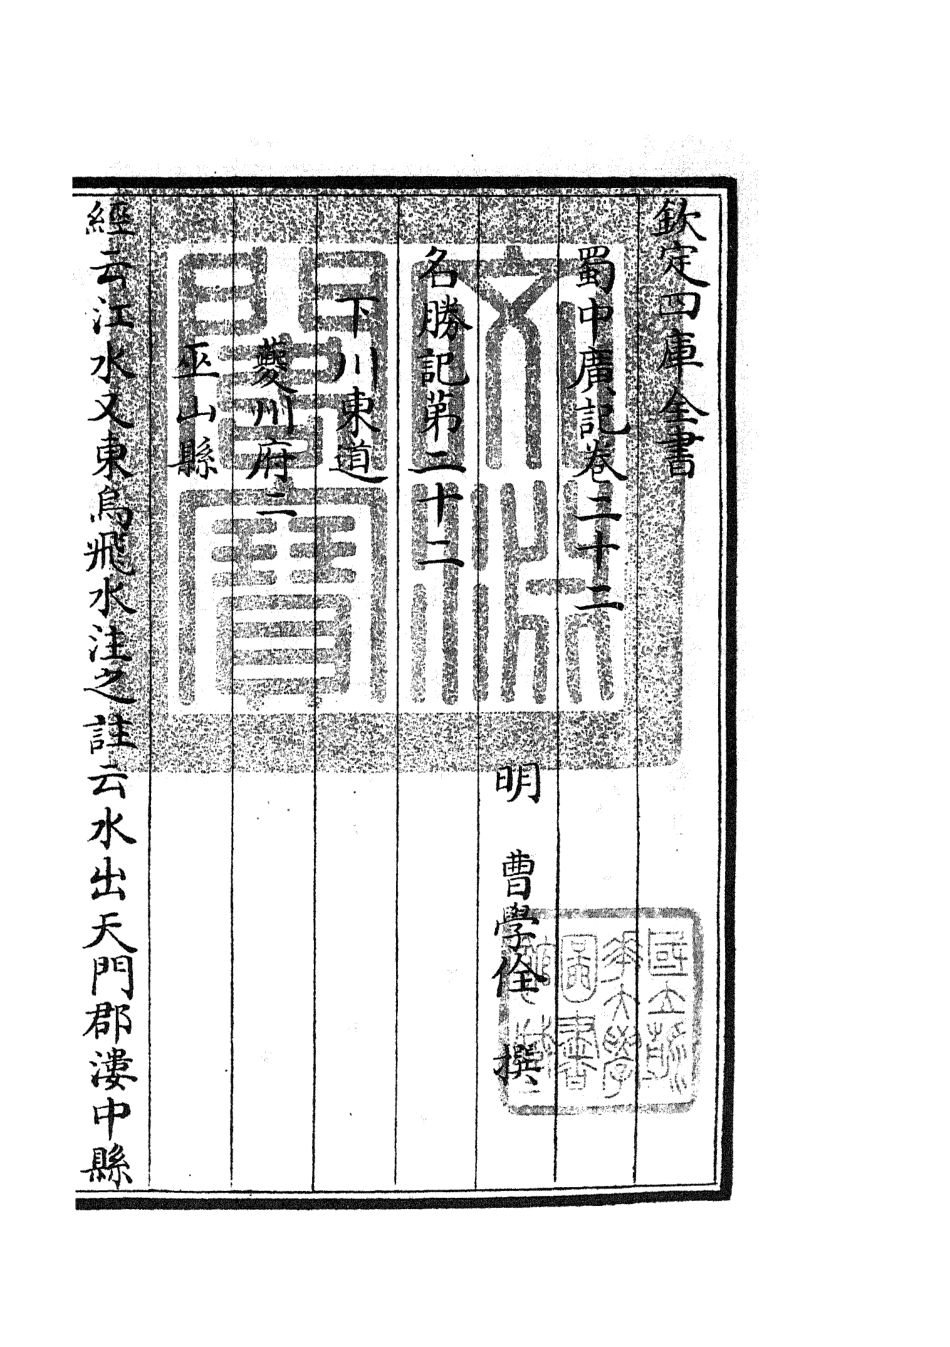 欽定四庫全書
蜀中廣記卷二十二
明 曹學佺 撰
名勝記第二十二
下川東道
夔州府二
巫山縣
經云江水又東烏飛水注之註云水出天門郡漊中縣
文淵閣寶
國立浙江大學圖書館藏